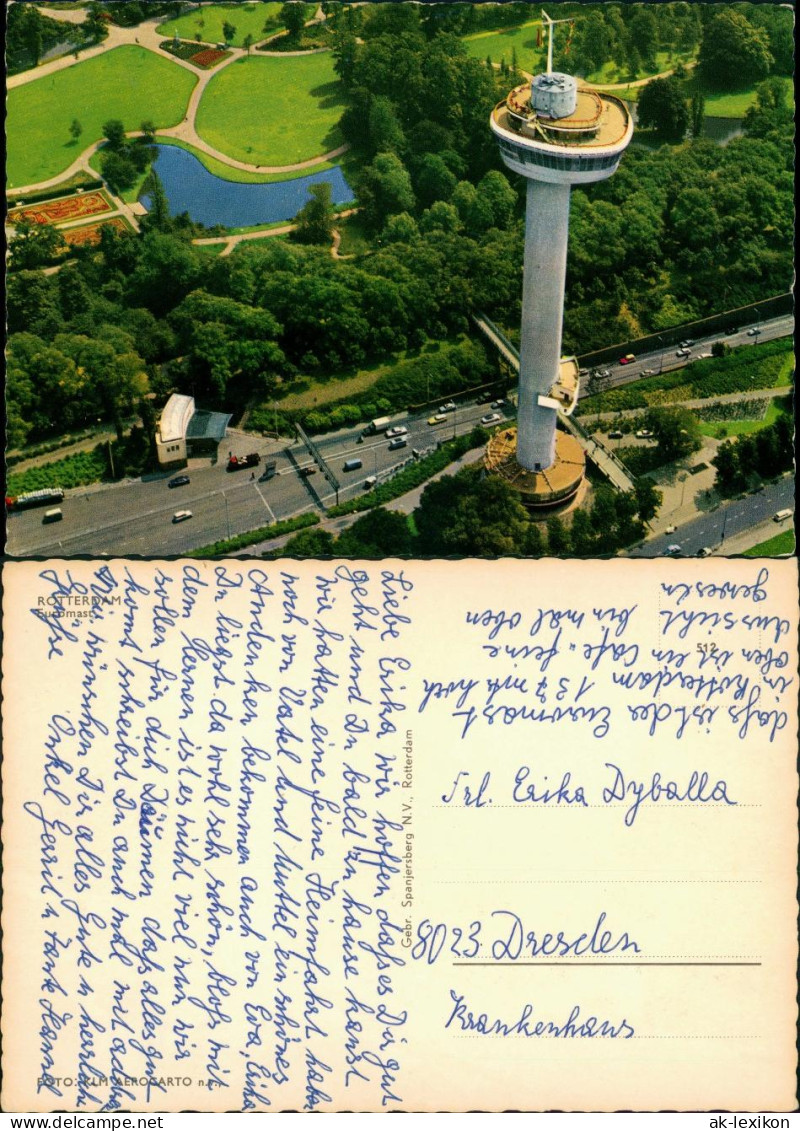 ROTTERDAM
Euromast
512
dass ist der Euromast
in Rotterdam 137 mtr hoch
oben ist ein Cafe. feine
Aussicht bin mal oben
gewesen
Frl. Erika Dyballa
8023 Dresden
Krankenhaus
Gebr. Spanjersberg N.V., Rotterdam
Liebe Erika wir hoffen dass es Dir gut
geht und Du bald zu hause kanst
wir hatten eine feine Heimfahrt habe
noch von Vatel und Muttel ein schönes
Andenken bekommen auch von Eva, Erika
Du liegst da wohl sehr schön, bloss mit
dem lernen ist es nicht viel nun wir
sollen für dich Däumen dass alles gut
komt schreibst Du auch mal mit
Wir wünschen Dir alles Gute u herzliche
Grüsse Onkel Gerrit u Tante Hannel
FOTO: KLM AEROCARTO n.v.
www.ansichtskarten-lexikon.de
ak-lexikon